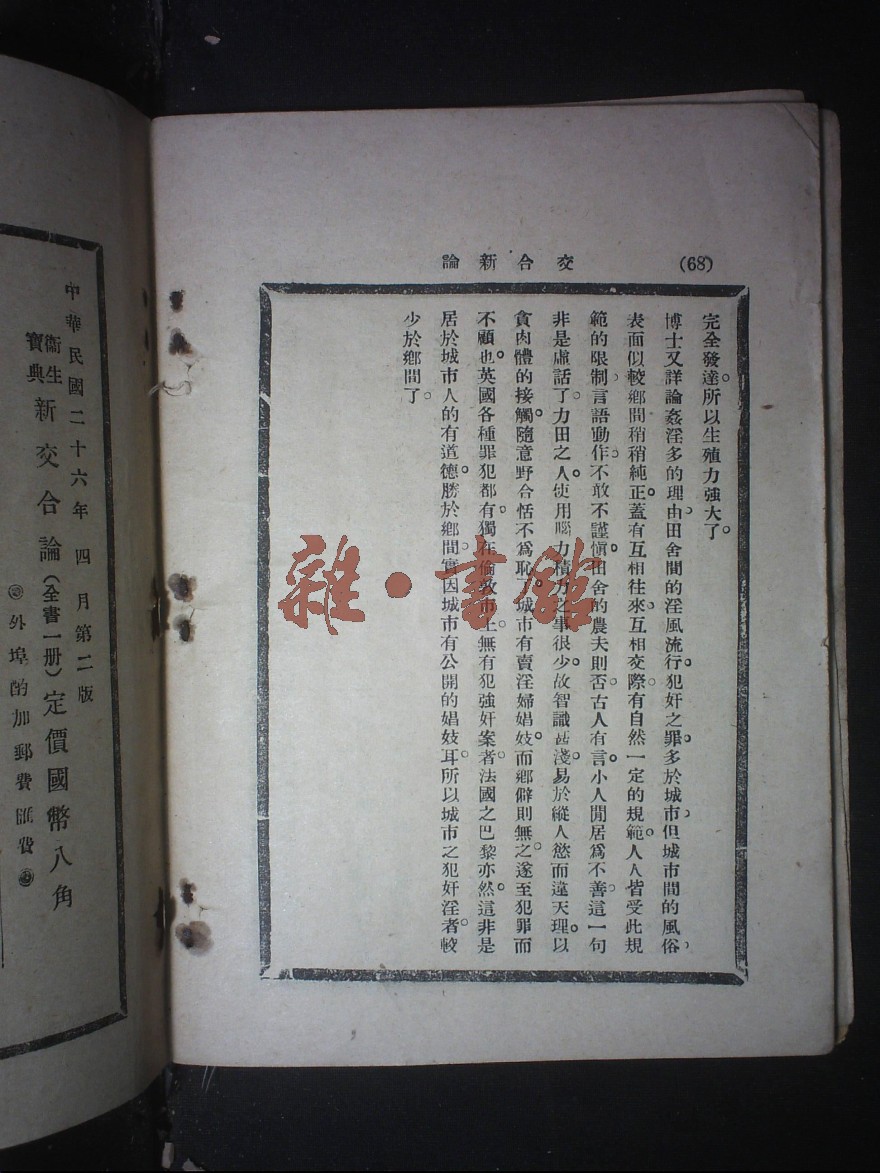 (68)
交合新論
完全發達。所以生殖力強大了。
博士又詳論姦淫多的理由。田舍間的淫風流行。犯奸之罪。多於城市、但城市間的風俗、
表面似較鄉間稍稍純正。蓋有互相往來、互相交際、有自然一定的規範。人人皆受此規
範的限制、言語動作、不敢不謹愼。田舍的農夫則否。古人有言。小人閒居爲不善、這一句
非是虛話了。力田之人。使用腦力積力之事很少。故智識甚淺。易於縱人慾而違天理。以
貪肉體的接觸。隨意野合、恬不爲恥。城市有賣淫婦娼妓。而鄉僻則無之。遂至犯罪而
不顧也。英國各種罪犯都有。獨在倫敦市上。無有犯強奸案者。法國之巴黎亦然。這非是
居於城市人的有道德。勝於鄉間。實因城市有公開的娼妓耳。所以城市之犯奸淫者。較
少於鄉間了。
雜·書館
中華民國二十六年四月第二版
衞生寶典 新交合論(全書一册)定價國幣八角
◎外埠酌加郵費匯費◎